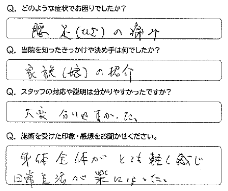 Q. どのような症状でお困りでしたか？
腰、足(ひざ)の痛み
Q. 当院を知ったきっかけや決め手は何でしたか？
家族(娘)の紹介
Q. スタッフの対応や説明は分かりやすかったですか？
大変分りやすかった。
Q. 施術を受けた印象・感想をお聞かせください。
身体全体がとても軽く感じ
日常生活が楽になった。